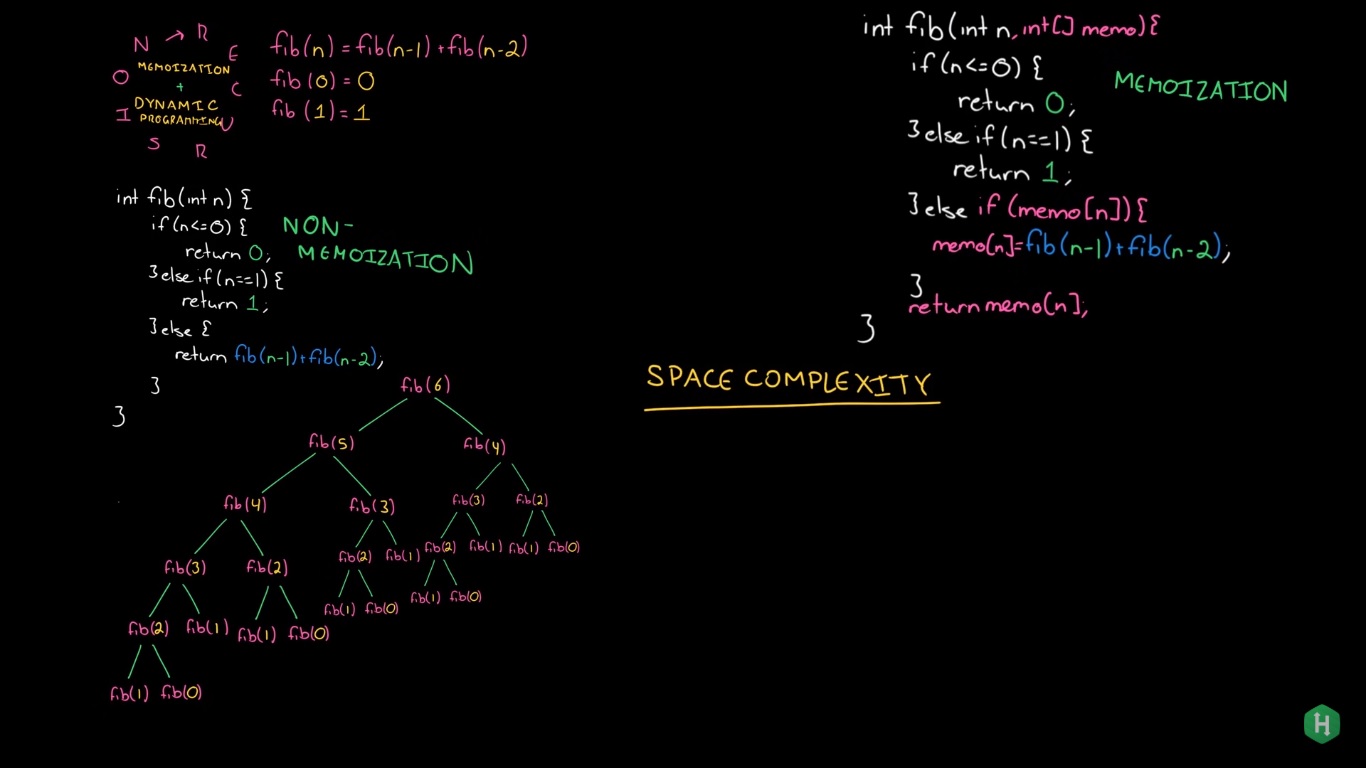 N → R
E
C
U
R
S
I
O
MEMOIZATION
+
DYNAMIC
PROGRAMMING
fib(n) = fib(n-1) + fib(n-2)
fib(0) = 0
fib(1) = 1
int fib(int n) {
if (n<=0) {
return 0;
}else if (n==1) {
return 1;
}else {
return fib(n-1)+fib(n-2);
}
}
NON-
MEMOIZATION
fib(6)
fib(5) fib(4)
fib(4) fib(3) fib(3) fib(2)
fib(3) fib(2) fib(2) fib(1) fib(2) fib(1) fib(1) fib(0)
fib(2) fib(1) fib(1) fib(0) fib(1) fib(0) fib(1) fib(0)
fib(1) fib(0)
int fib(int n, int[] memo){
if (n<=0) {
return 0;
}else if (n==1) {
return 1;
}else if (memo[n]){
memo[n]=fib(n-1)+fib(n-2);
}
return memo[n];
}
MEMOIZATION
SPACE COMPLEXITY
H